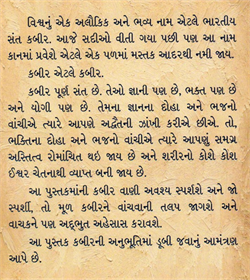 વિશ્વનું એક અલૌકિક અને ભવ્ય નામ એટલે ભારતીય
સંત કબીર. આજે સદીઓ વીતી ગયા પછી પણ આ નામ
કાનમાં પ્રવેશે એટલે એક પળમાં મસ્તક આદરથી નમી જાય.
કબીર એટલે કબીર.
કબીર પૂર્ણ સંત છે. તેઓ જ્ઞાની પણ છે, ભક્ત પણ છે
અને યોગી પણ છે. તેમના જ્ઞાનના દોહા અને ભજનો
વાંચીએ ત્યારે આપણે અદ્વૈતની ઝાંખી કરીએ છીએ. તો,
ભક્તિના દોહા અને ભજનો વાંચીએ ત્યારે આપણું સમગ્ર
અસ્તિત્વ રોમાંચિત થઇ જાય છે અને શરીરનો કોશે કોશ
ઈશ્વર ચેતનાથી વ્યાપ્ત બની જાય છે.
આ પુસ્તકમાંની કબીર વાણી અવશ્ય સ્પર્શશે અને જો
સ્પર્શી, તો મૂળ કબીરને વાંચવાની તલપ જાગશે અને
વાચકને પણ અદ્ભુત અહેસાસ કરાવશે.
આ પુસ્તક કબીરની અનુભૂતિમાં ડૂબી જવાનું આમંત્રણ
આપે છે.